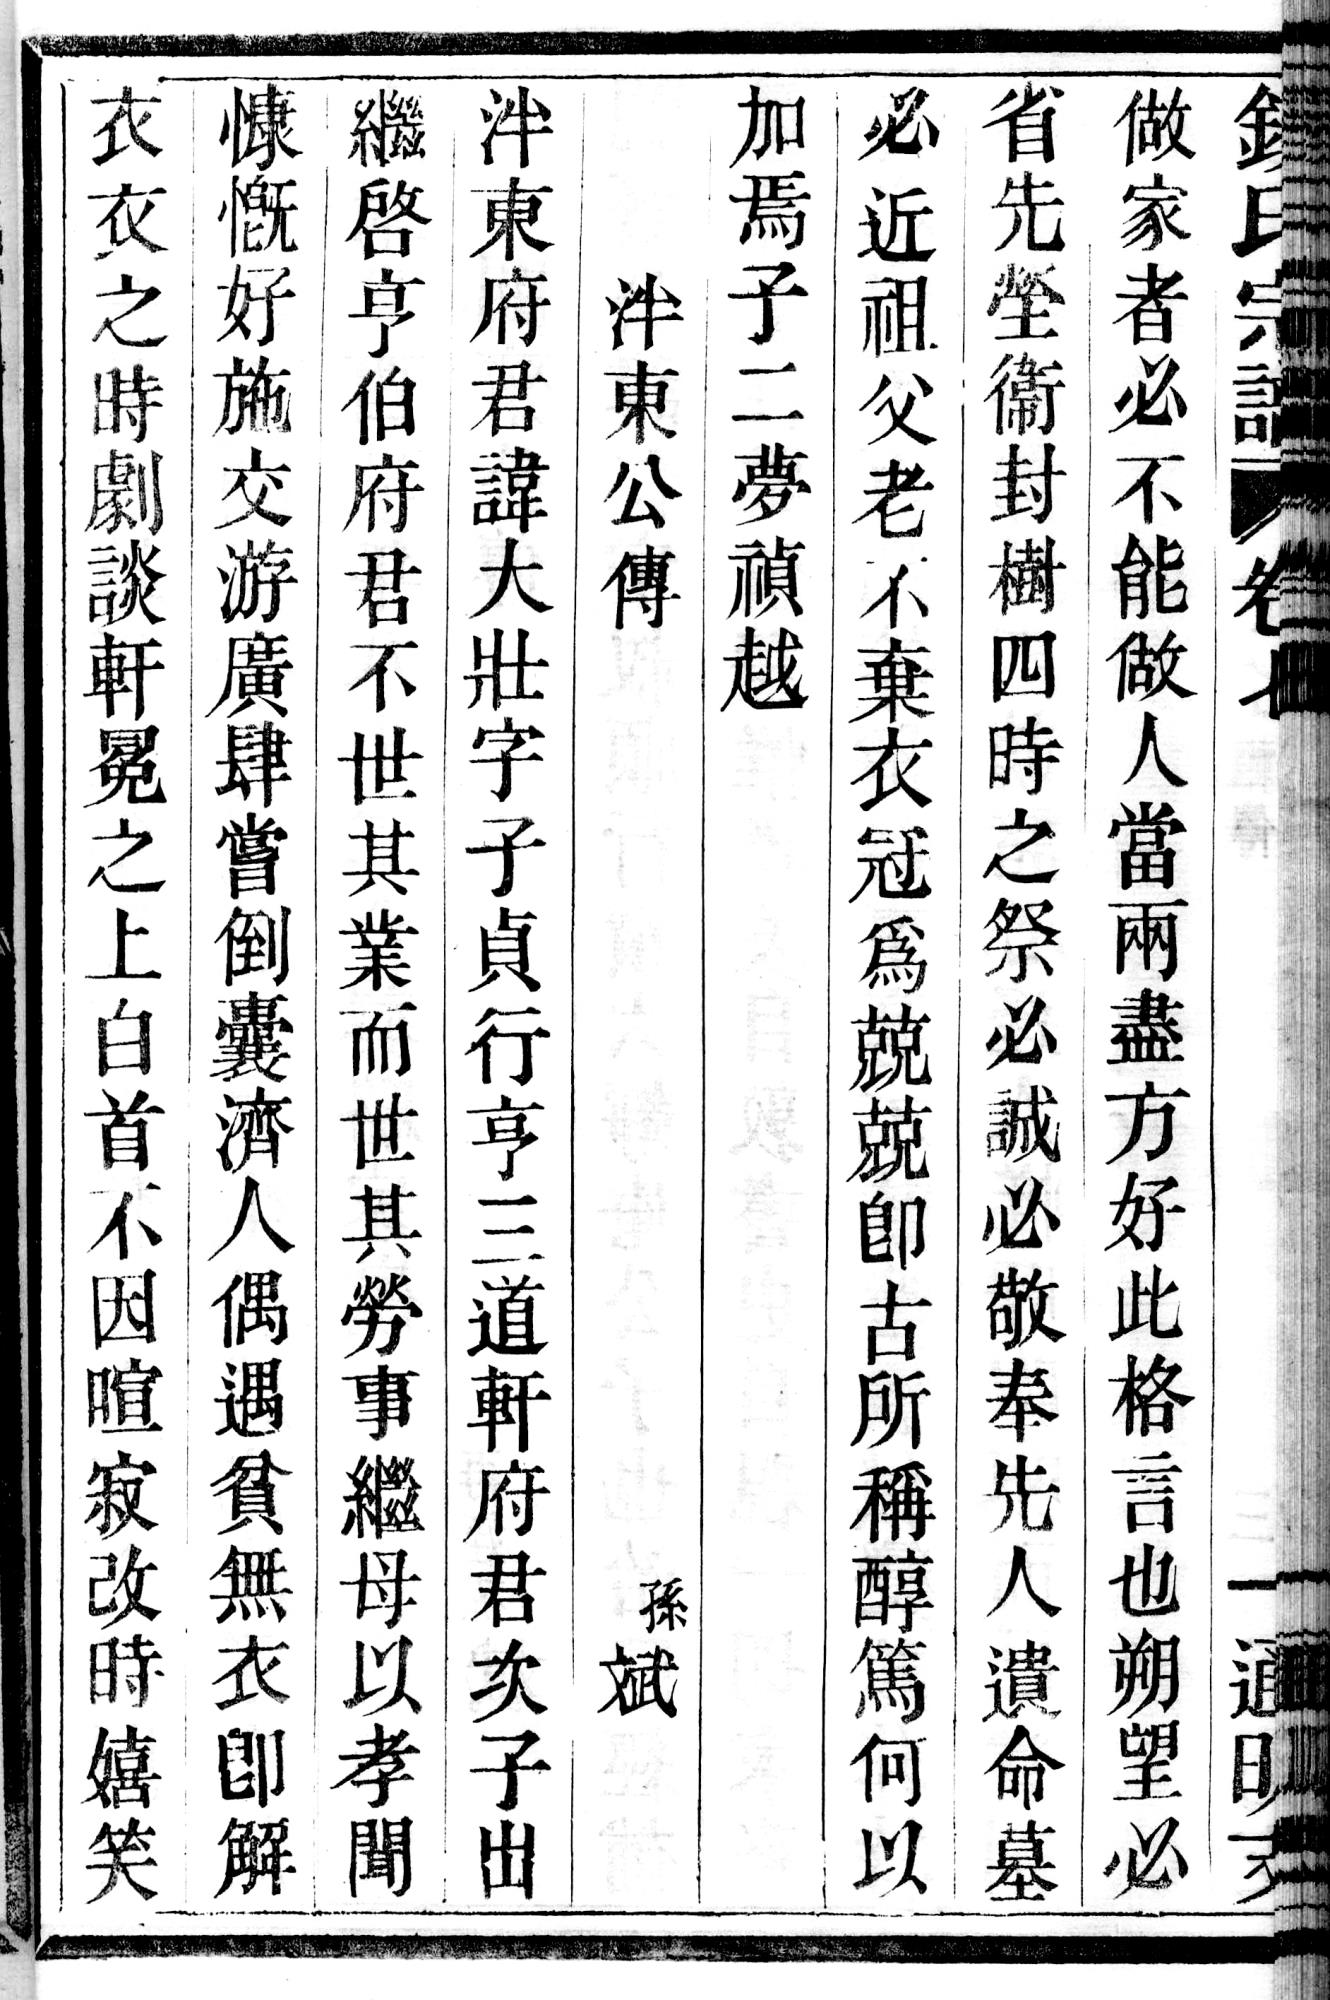 氏宗譜 卷七 一 通明
做家者必不能做人當兩盡方好此格言也朔望必
省先塋衞封樹四時之祭必誠必敬奉先人遺命墓
必近祖父老不棄衣冠爲兢兢卽古所稱醇篤何以
加焉子二夢禎越
泮東公傳 孫斌
泮東府君諱大壯字子貞行亨三道軒府君次子出
繼啓亨伯府君不世其業而世其勞事繼母以孝聞
慷慨好施交游廣肆嘗倒囊濟人偶遇貧無衣卽解
衣衣之時劇談軒冕之上白首不因喧寂改時嬉笑